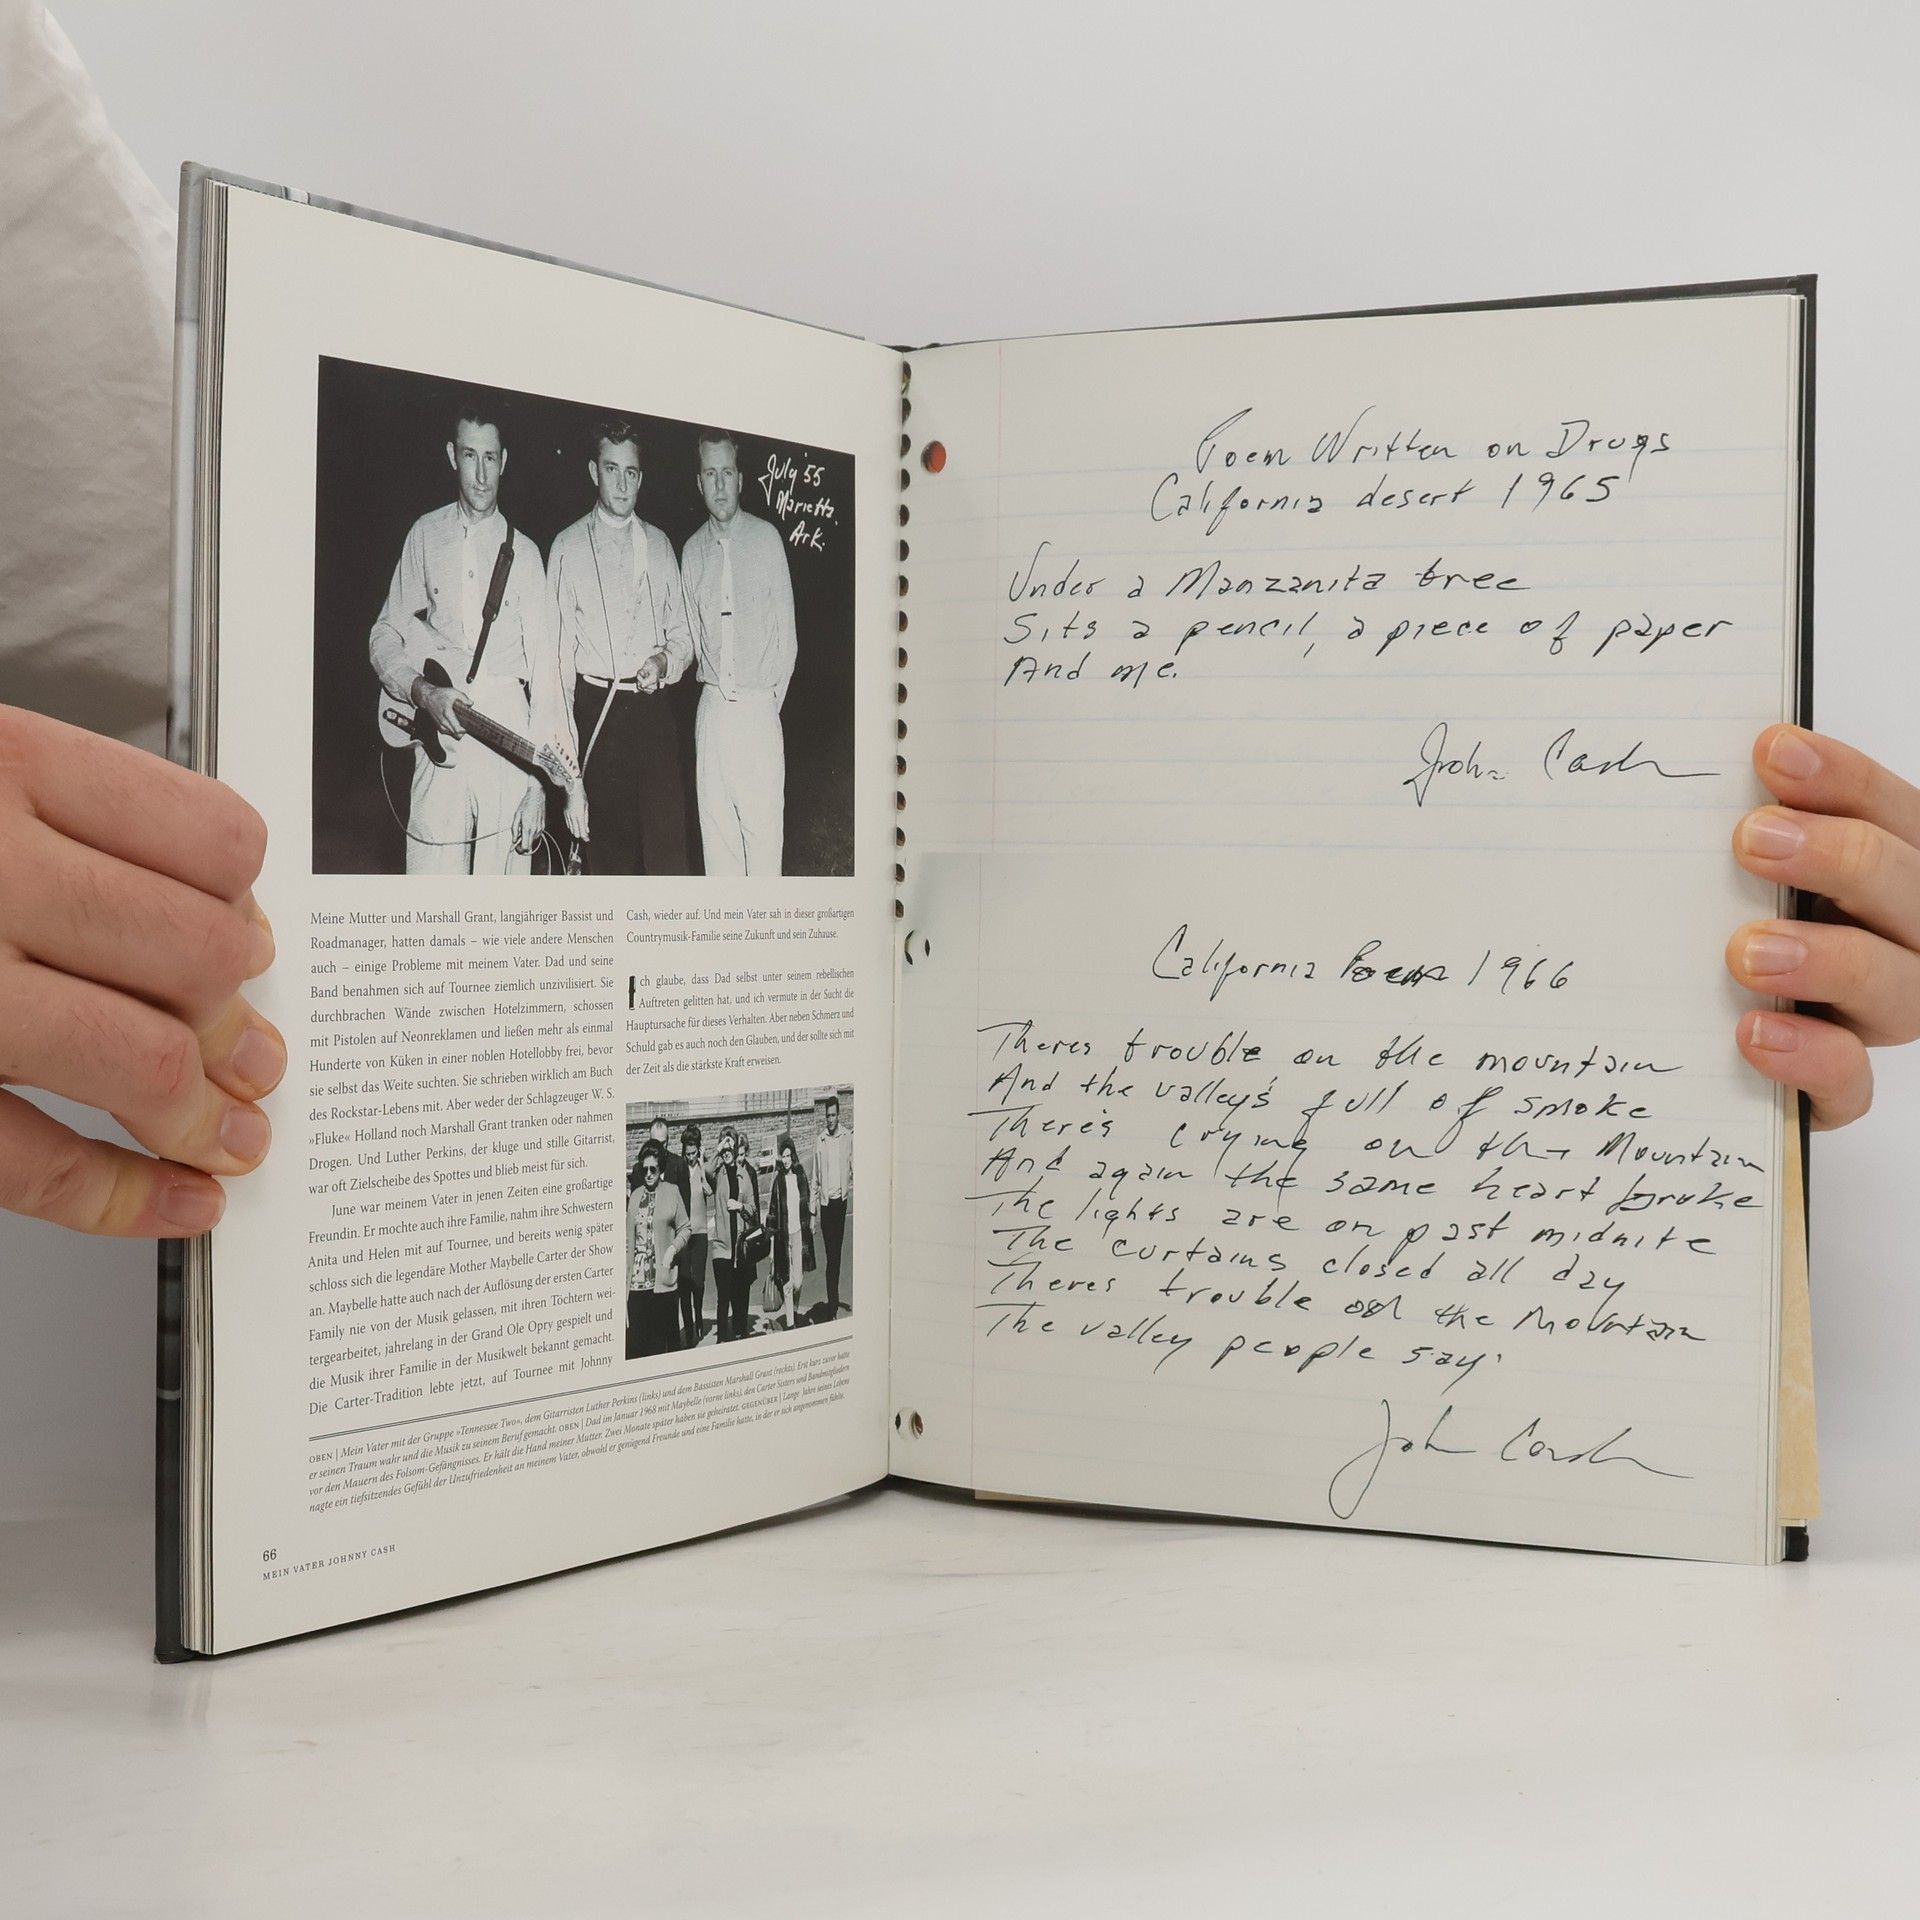 July '55
Marietta.
Ark.
Meine Mutter und Marshall Grant, langjähriger Bassist und
Roadmanager, hatten damals – wie viele andere Menschen
auch – einige Probleme mit meinem Vater. Dad und seine
Band benahmen sich auf Tournee ziemlich unzivilisiert. Sie
durchbrachen Wände zwischen Hotelzimmern, schossen
mit Pistolen auf Neonreklamen und ließen mehr als einmal
Hunderte von Küken in einer noblen Hotellobby frei, bevor
sie selbst das Weite suchten. Sie schrieben wirklich am Buch
des Rockstar-Lebens mit. Aber weder der Schlagzeuger W. S.
»Fluke« Holland noch Marshall Grant tranken oder nahmen
Drogen. Und Luther Perkins, der kluge und stille Gitarrist,
war oft Zielscheibe des Spottes und blieb meist für sich.
June war meinem Vater in jenen Zeiten eine großartige
Freundin. Er mochte auch ihre Familie, nahm ihre Schwestern
Anita und Helen mit auf Tournee, und bereits wenig später
schloss sich die legendäre Mother Maybelle Carter der Show
an. Maybelle hatte auch nach der Auflösung der ersten Carter
Family nie von der Musik gelassen, mit ihren Töchtern wei-
tergearbeitet, jahrelang in der Grand Ole Opry gespielt und
die Musik ihrer Familie in der Musikwelt bekannt gemacht.
Die Carter-Tradition lebte jetzt, auf Tournee mit Johnny
Cash, wieder auf. Und mein Vater sah in dieser großartigen
Countrymusik-Familie seine Zukunft und sein Zuhause.
Ich glaube, dass Dad selbst unter seinem rebellischen
Auftreten gelitten hat, und ich vermute in der Sucht die
Hauptursache für dieses Verhalten. Aber neben Schmerz und
Schuld gab es auch noch den Glauben, und der sollte sich mit
der Zeit als die stärkste Kraft erweisen.
OBEN | Mein Vater mit der Gruppe »Tennessee Two«, dem Gitarristen Luther Perkins (links) und dem Bassisten Marshall Grant (rechts). Erst kurz zuvor hatte
er seinen Traum wahr und die Musik zu seinem Beruf gemacht. OBEN | Dad im Januar 1968 mit Maybelle (vorne links), den Carter Sisters und Bandmitgliedern
vor den Mauern des Folsom-Gefängnisses. Er hält die Hand meiner Mutter. Zwei Monate später haben sie geheiratet. GEGENÜBER | Lange Jahre seines Lebens
nagte ein tiefsitzendes Gefühl der Unzufriedenheit an meinem Vater, obwohl er genügend Freunde und eine Familie hatte, in der er sich angenommen fühlte.
66
MEIN VATER JOHNNY CASH
Poem Written on Drugs
California desert 1965
Under a Manzanita tree
Sits a pencil, a piece of paper
And me.
John Cash
California Poem 1966
Theres trouble on the mountain
And the valley's full of smoke
There's crying on the Mountain
And again the same heart broke
The lights are on past midnite
The curtains closed all day
Theres trouble on the Mountain
The valley people say.
John Cash